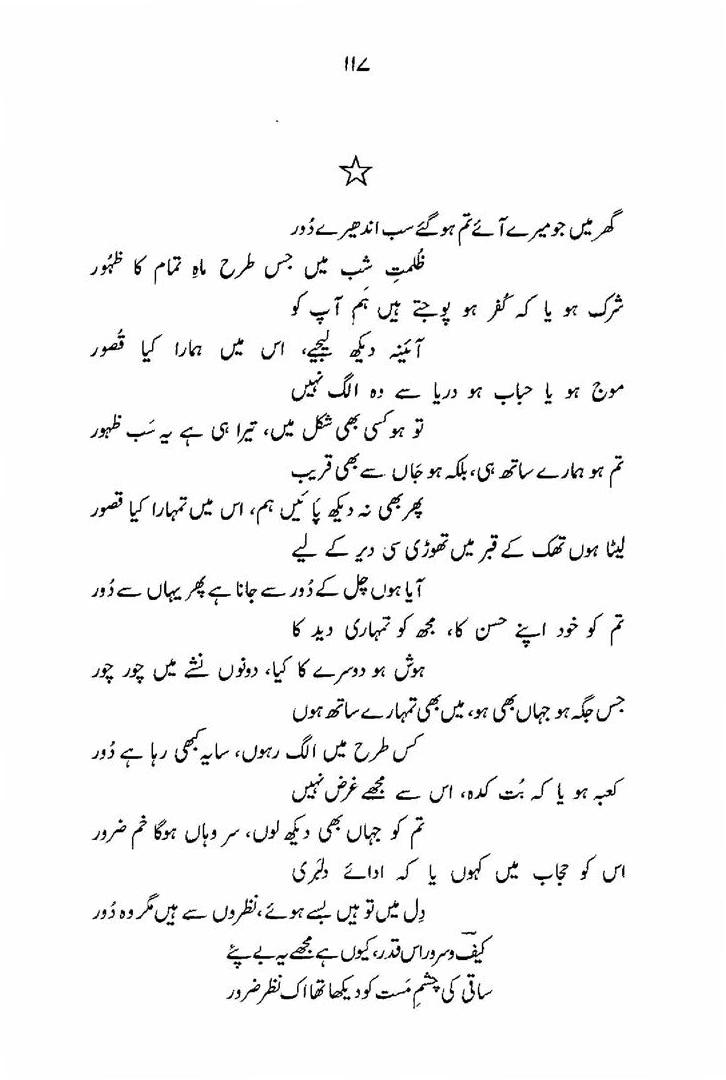 ۱۱۷
گھر میں جو میرے آئے تم ہو گئے سب اندھیرے دُور
ظُلمتِ شب میں جس طرح ماہِ تمام کا ظہُور
شرک ہو یا کہ کُفر ہو پوجتے ہیں ہم آپ کو
آئینہ دیکھ لیجیے، اس میں ہمارا کیا قصُور
موج ہو یا حباب ہو دریا سے وہ الگ نہیں
تو ہو کسی بھی شکل میں، تیرا ہی ہے یہ سَب ظہور
تم ہو ہمارے ساتھ ہی، بلکہ ہو جَاں سے بھی قریب
پھر بھی نہ دیکھ پائیں ہم، اس میں تمہارا کیا قصور
لیٹا ہوں تھک کے قبر میں تھوڑی سی دیر کے لیے
آیا ہوں چل کے دُور سے جانا ہے پھر یہاں سے دُور
تم کو خود اپنے حسن کا، مجھ کو تمہاری دید کا
ہوش ہو دوسرے کا کیا، دونوں نشے میں چور چور
جس جگہ ہو جہاں بھی ہو، میں بھی تمہارے ساتھ ہوں
کس طرح میں الگ رہوں، سایہ کبھی رہا ہے دُور
کعبہ ہو یا کہ بُت کدہ، اس سے مجھے غرض نہیں
تم کو جہاں بھی دیکھ لوں، سر وہاں ہوگا خم ضرور
اس کو حجاب میں کہوں یا کہ ادائے دلبَری
دِل میں تو ہیں بسے ہوئے، نظروں سے ہیں مگر وہ دُور
کیفؔ و سرور اس قدر، کیوں ہے مجھے یہ بے پئے
ساقی کی چشمِ مَست کو دیکھا تھا اک نظر ضرور